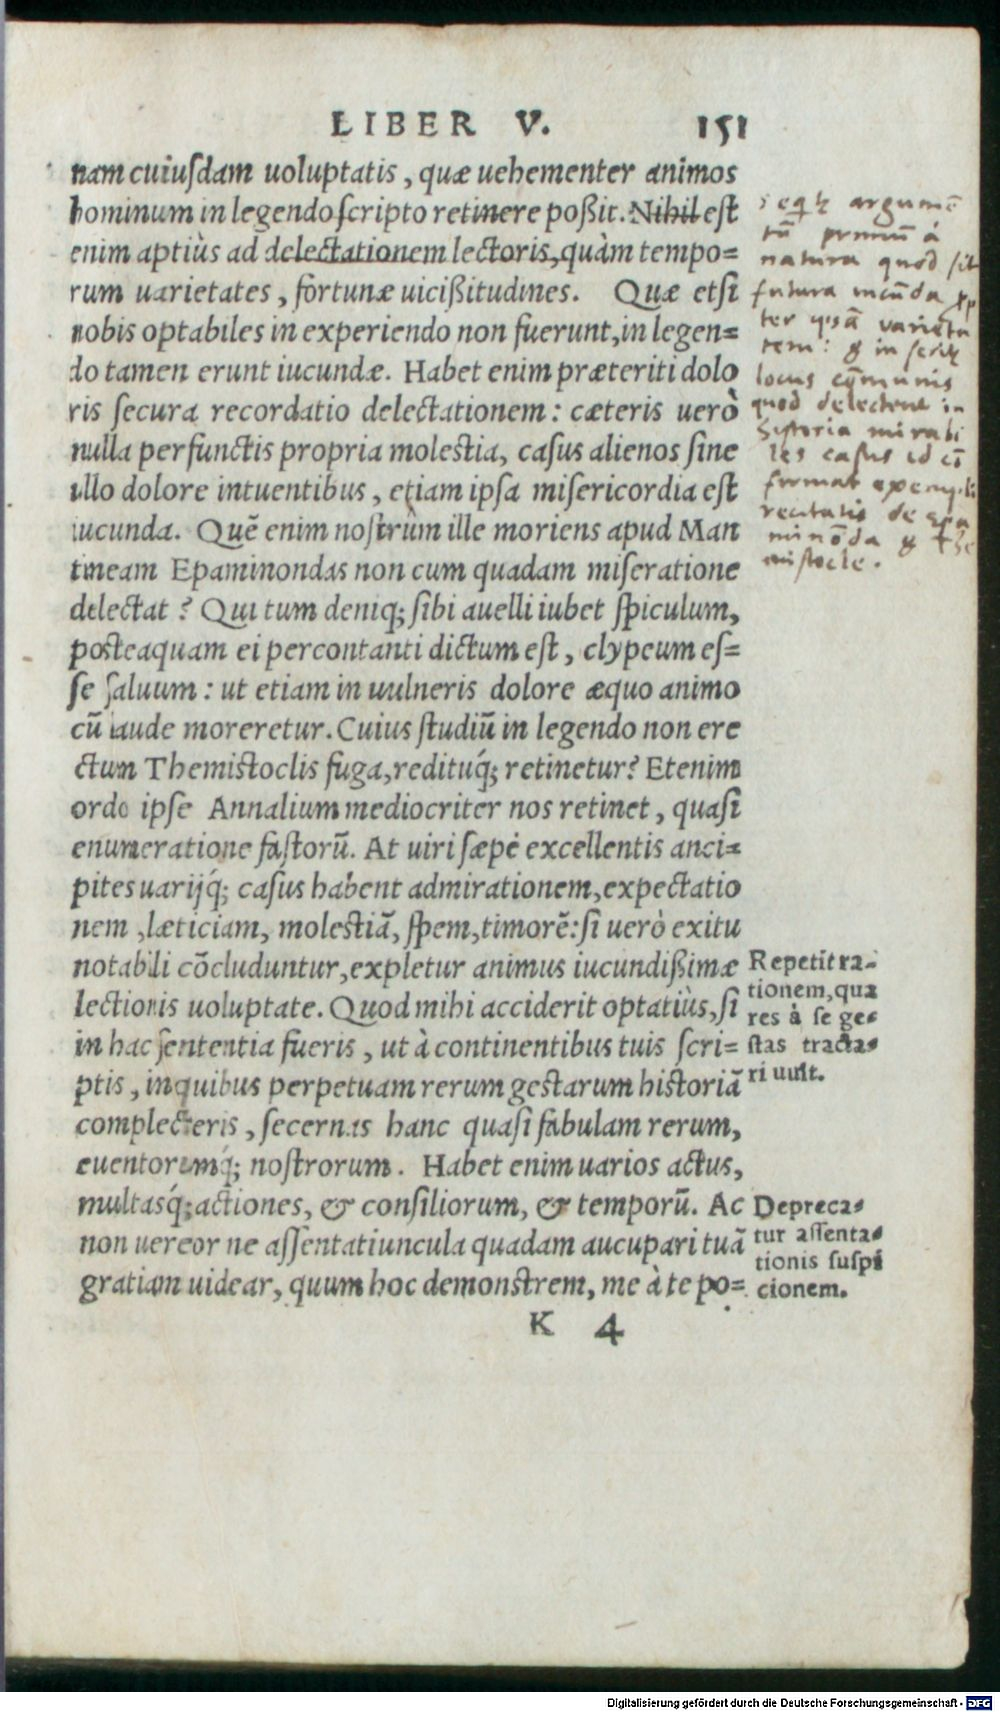 LIBER V. 151
nam cuiusdam uoluptatis, quæ uehementer animos
hominum in legendo scripto retinere poßit. Nihil est
enim aptiùs ad delectationem lectoris, quàm tempo=
rum uarietates, fortunæ uicißitudines. Quæ etsi
nobis optabiles in experiendo non fuerunt, in legen=
do tamen erunt iucundæ. Habet enim præteriti dolo
ris secura recordatio delectationem: cæteris uerò
nulla perfunctis propria molestia, casus alienos sine
ullo dolore intuentibus, etiam ipsa misericordia est
iucunda. Quẽ enim nostrùm ille moriens apud Man
tineam Epaminondas non cum quadam miseratione
delectat? Qui tum deniq; sibi auelli iubet spiculum,
posteaquam ei percontanti dictum est, clypeum es=
se saluum: ut etiam in uulneris dolore æquo animo
cũ laude moreretur. Cuius studiũ in legendo non ere
ctum Themistoclis fuga, redituq́; retinetur? Etenim
ordo ipse Annalium mediocriter nos retinet, quasi
enumeratione fastorũ. At uiri sæpè excellentis anci=
pites uarijq́; casus habent admirationem, expectatio
nem, læticiam, molestiã, spem, timorẽ: si uerò exitu
notabili cõcluduntur, expletur animus iucundißimæ
lectionis uoluptate. Quod mihi acciderit optatiùs, si
in hac sententia fueris, ut à continentibus tuis scri=
ptis, in quibus perpetuam rerum gestarum historiã
complecteris, secernas hanc quasi fabulam rerum,
euentorumq́; nostrorum. Habet enim uarios actus,
multasq́; actiones, & consiliorum, & temporũ. Ac
non uereor ne assentatiuncula quadam aucupari tuã
gratiam uidear, quum hoc demonstrem, me à te po=
K 4
argumẽ
tũ primũ á
natura quod sit
futura iucũda
ter ipsã varieta
tem: & in
locus cõmunis
quod delectent in
historia mirabi
les casus id
firmat exempli
recitatis de epa
minõda & the
mistocle.
Repetit ra-
tionem, qua
res à se ge-
stas tracta-
ri uult.
Depreca-
tur assenta-
tionis suspi
cionem.
Digitalisierung gefördert durch die Deutsche Forschungsgemeinschaft - DFG